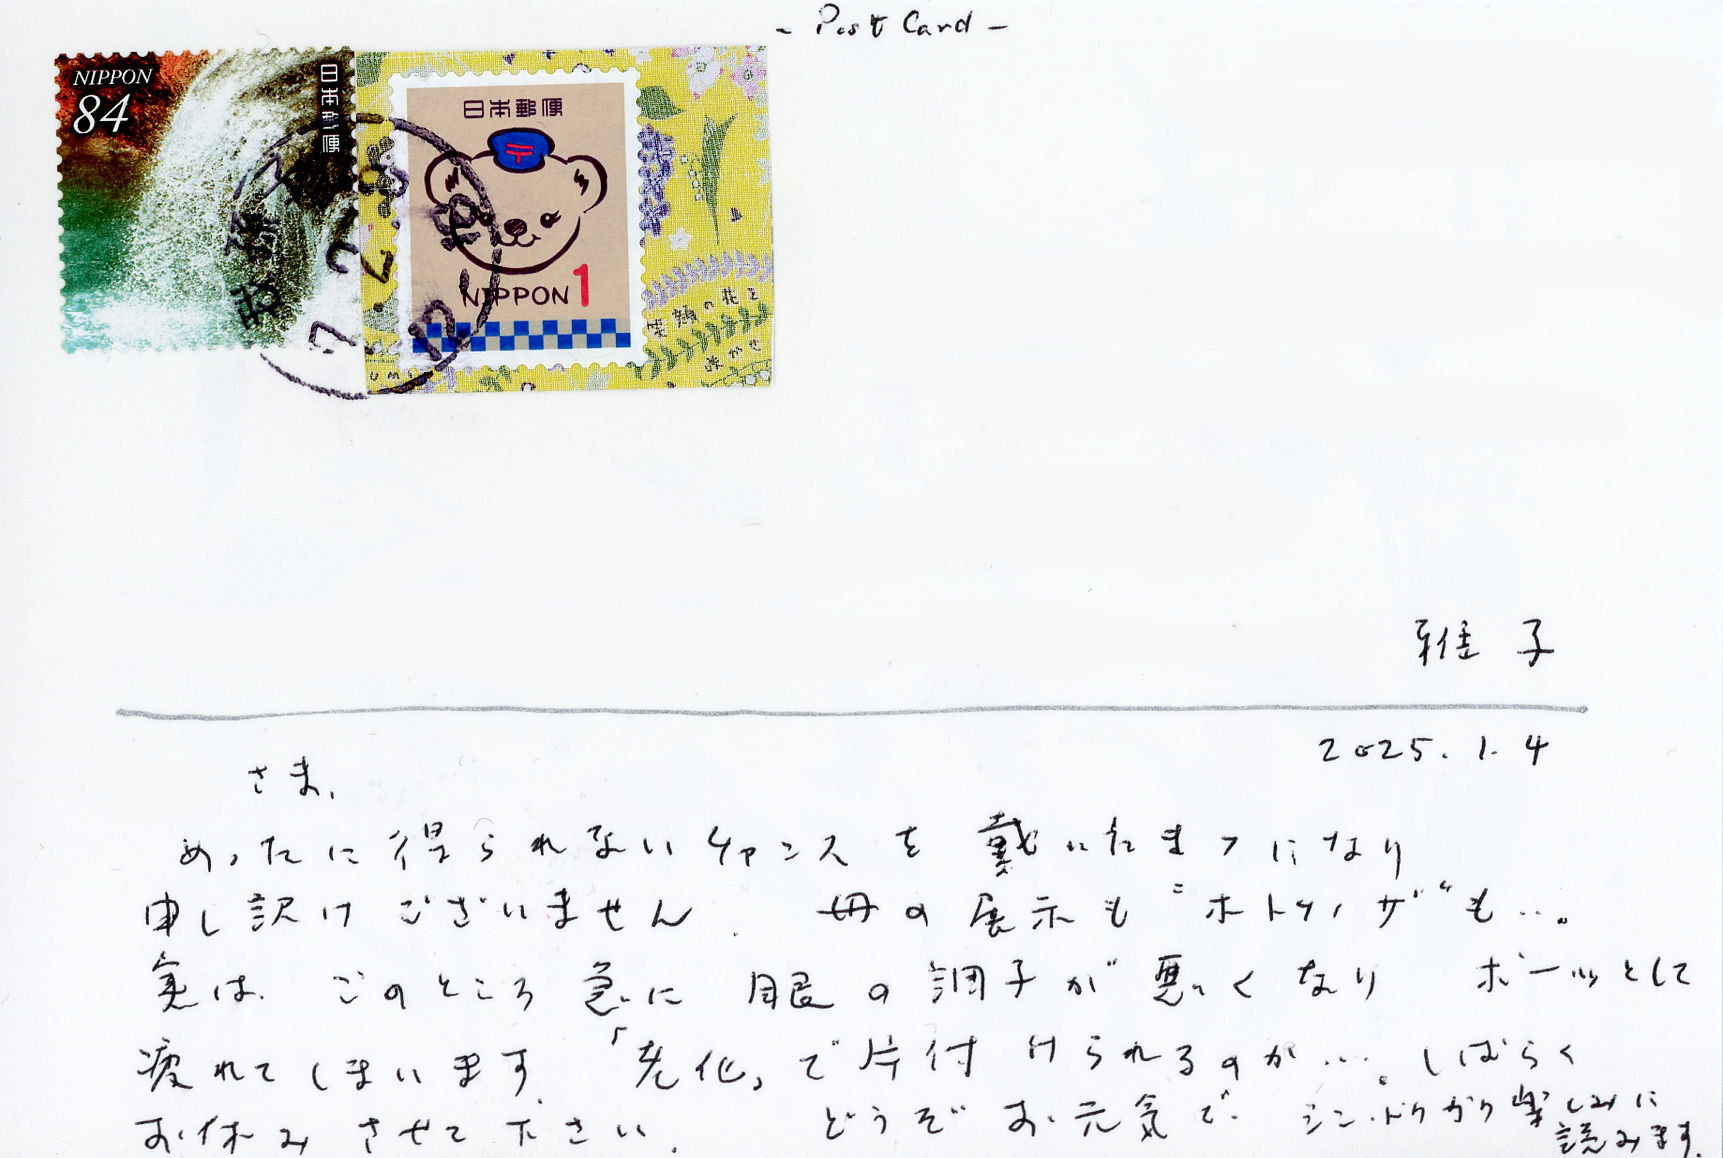 - Post Card -
NIPPON
84
日本郵便
日本郵便
NIPPON 1
笑顔の花を
咲かせ
7.2.8
12
雅子
2025.1.4
さま、
めったに得られないチャンスを戴いたまゝになり
申し訳けございません。母の展示も"ホトケノザ"も…。
実は、このところ急に眼の調子が悪くなり ボーッとして
疲れてしまいます。「老化」で片付けられるのか…。しばらく
お休みさせて下さい。 どうぞお元気で。 シン・ドクガク楽しみに
読みます。